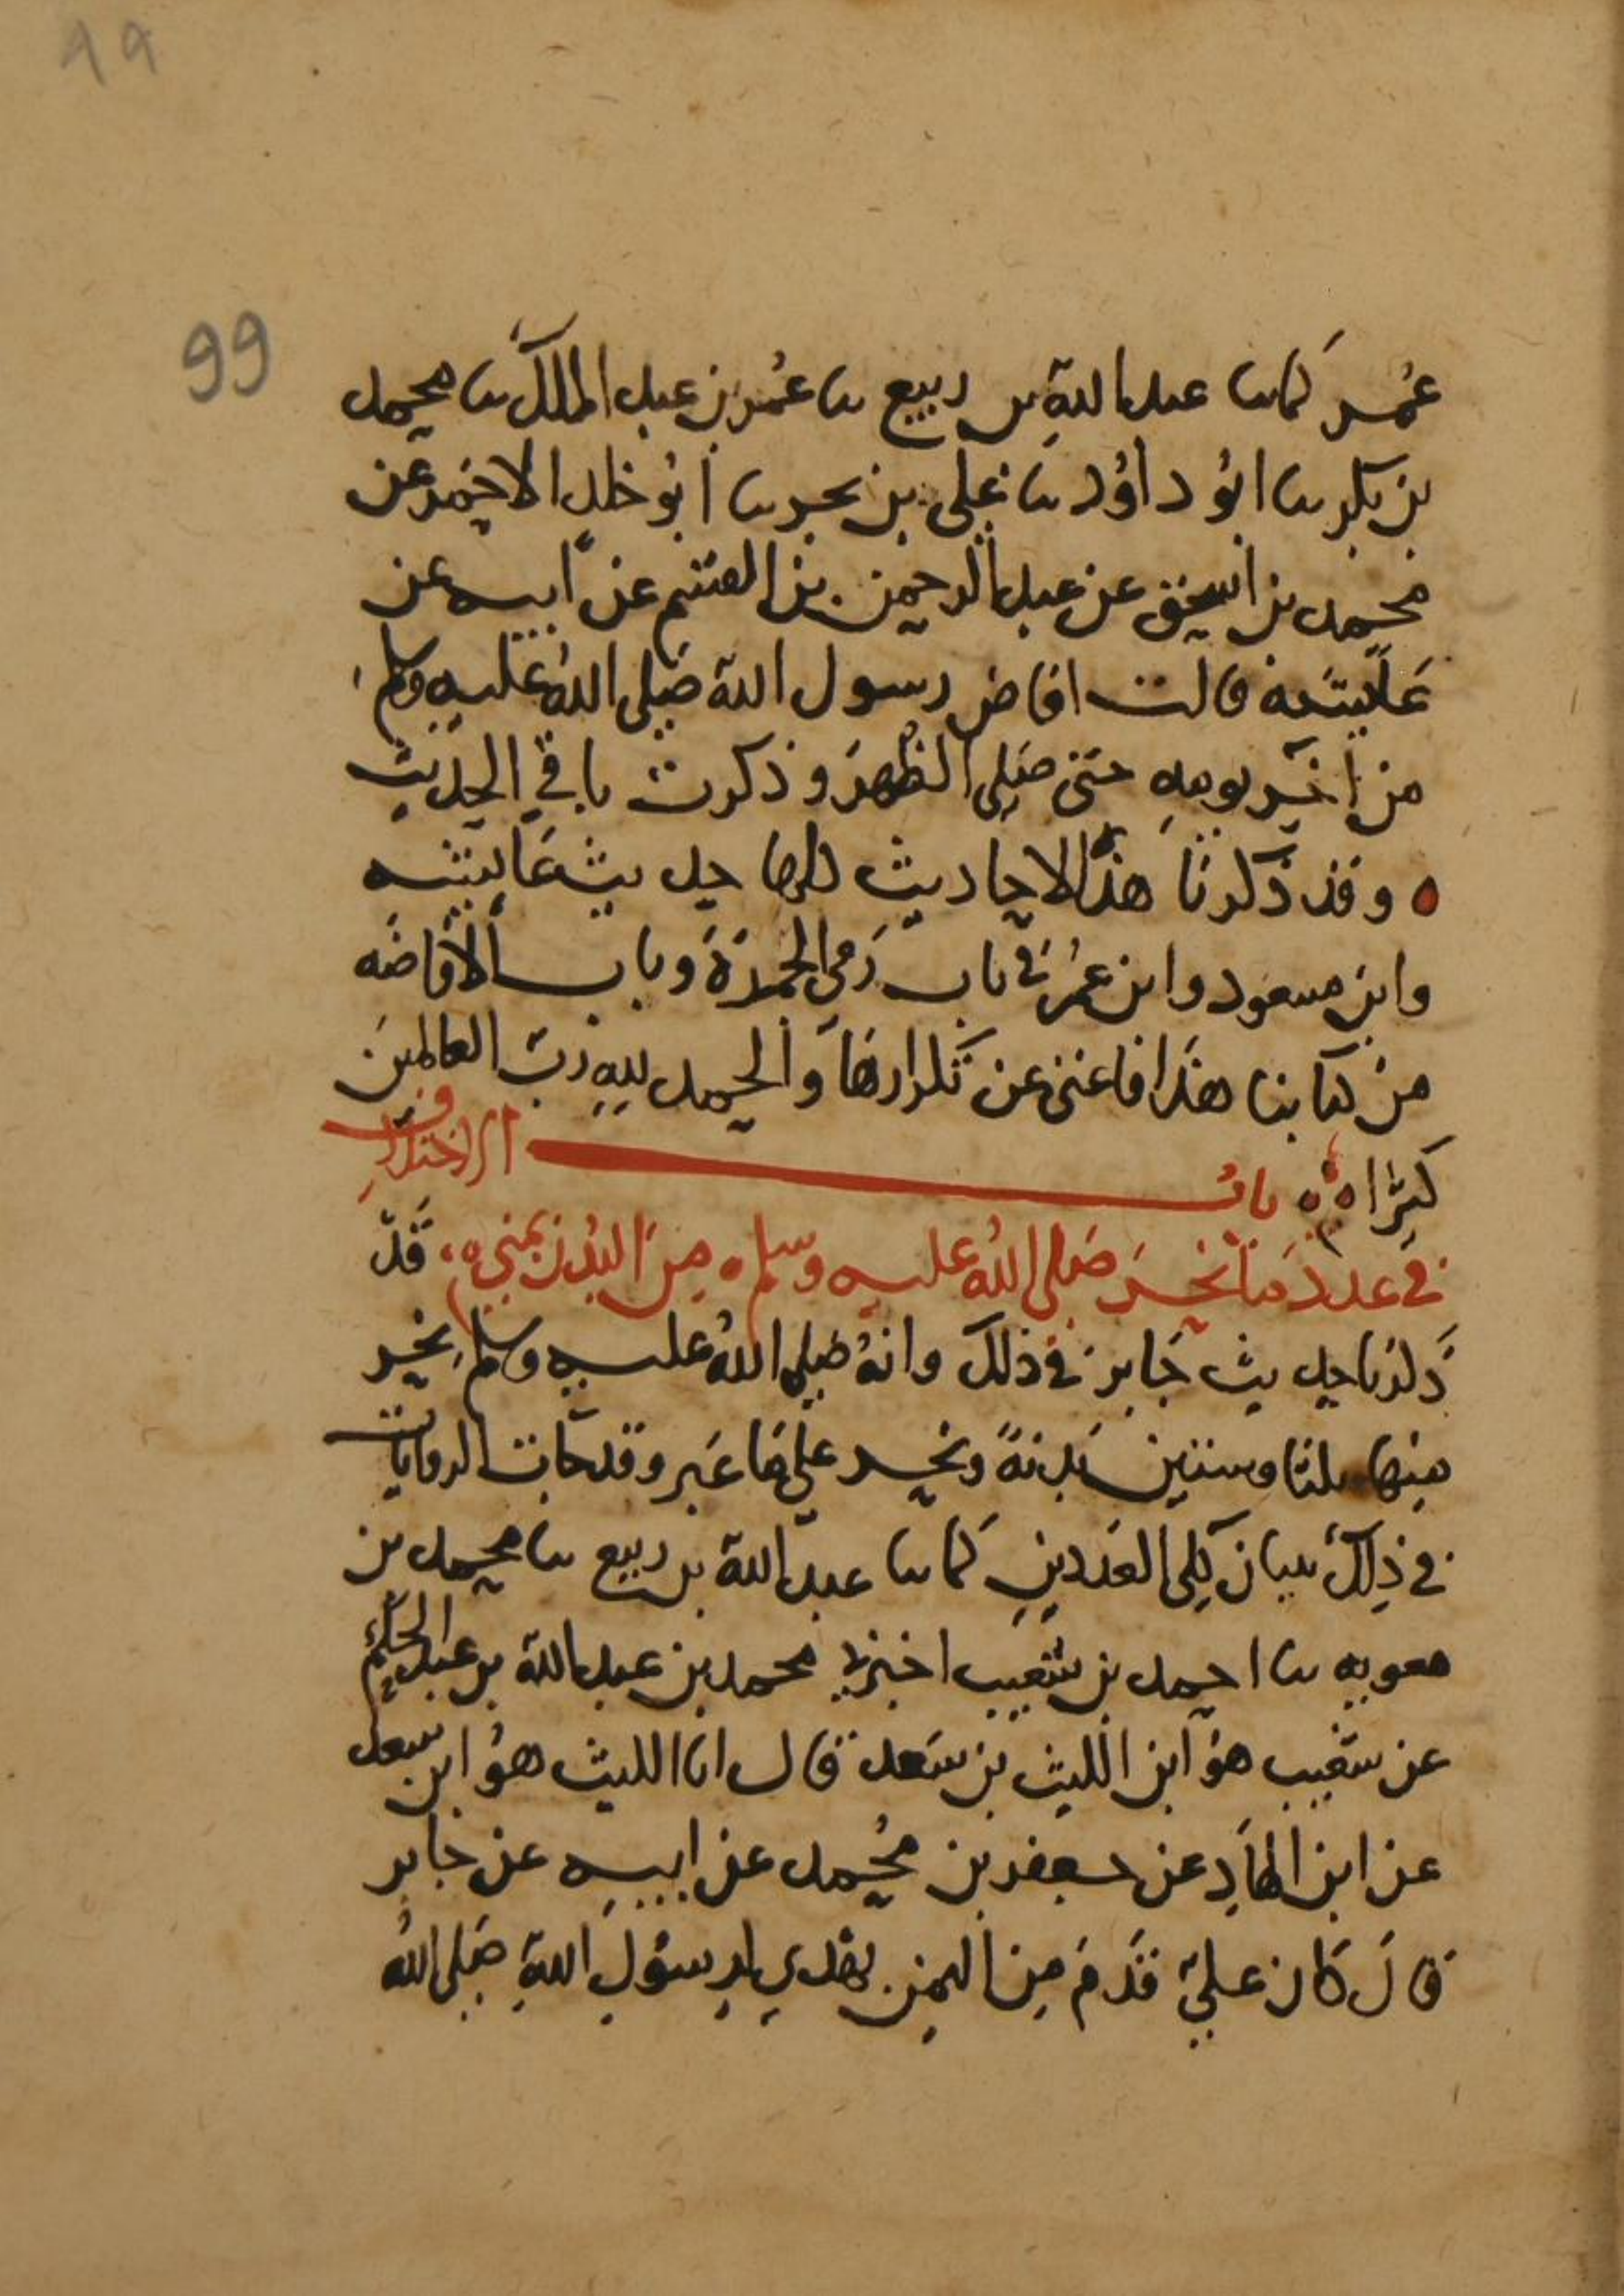 99
99
عُمر كما نا عبد الله بن ربيع نا عُمر بن عبد الملك نا محمد
بن بكر نا ابُو داوُد نا علي بن بحر نا ابُو خلد الاحمر عن
محمد بن اسحق عن عبد الرحمن بن القسم عن ابيه عن
عايشة قالت افاض رسول الله صلى الله عليه وسلم
من اخر يومهِ حتى صلى الظُهرَ وذكرت باقي الحديث
ه وقد ذكرنا هذه الاحاديث كلها حديث عايشه
وابن مسعود وابن عُمر في باب رَمي الجمرَة وباب الافاضه
من كتابنا هذا فاغنى عن تكرارها والحمد للهِ ربّ العالمينَ
كثيرًا ه بابُ الاختلاف
في عدد ما نحرَ صلى اللهُ عليه وسلم ه من البُدن بمنى ه قد
ذكرنا حديث جَابر في ذلك وانهُ صلى اللهُ عليه وسلم نحر
منها ثلثا وستين بَدنةً ونحر علي مَا غَبر وقد جات الروايات
في ذلك ببيان كلي العَددينِ كما نا عبد الله بن ربيع نا محمد بن
معويه نا احمد بن شعيب اخبرني محمد بن عبد الله بن عبد الحكم
عن شعَيب هوُ ابن الليث بن سَعد قال انا الليث هوُ ابن سعد
عن ابن الهادِ عن جعفر بن مُحمد عن ابيه عن جابر
قالَ كَان عليّ قَدمَ مِن اليمن بهدي لرسُولِ اللهِ صَلى اللهُ